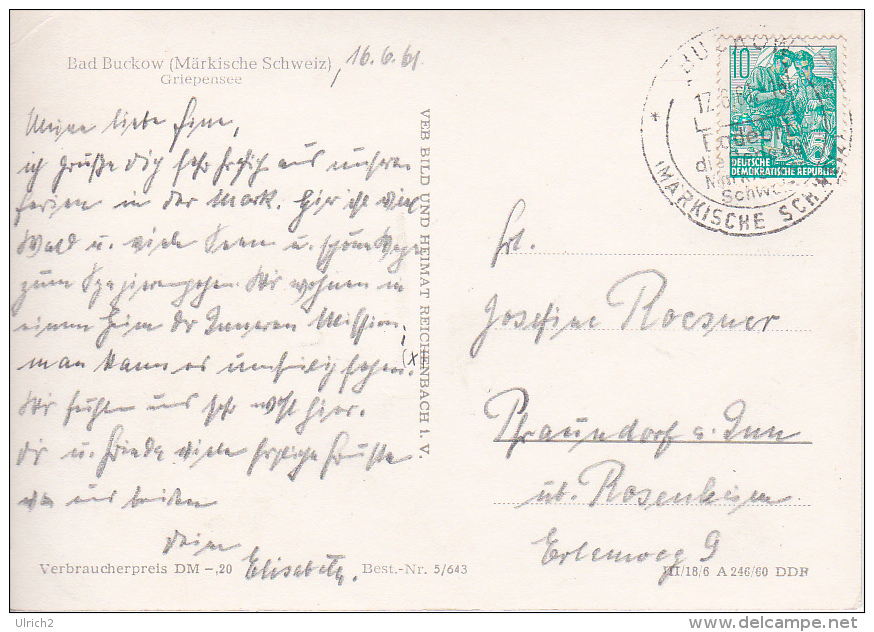 Bad Buckow (Märkische Schweiz)
Griepensee
, 16.6.61
Meine liebe Fine,
ich grüße Dich sehr herzlich aus unseren
Ferien in der Mark. Hier ist viel
Wald u. viele Seen u. schöne Wege
zum Spazierengehen. Wir wohnen in
einem Heim der Inneren Mission;
man kann es umseitig sehen. (x)
Wir fühlen uns sehr wohl hier.
Dir u. Friede viele herzliche Grüße
von uns beiden
Deine
Elisabeth.
Verbraucherpreis DM -,20
Best.-Nr. 5/643
VEB BILD UND HEIMAT REICHENBACH I. V.
BUCKOW
17.6.61
Märkische
Schweiz
(MÄRKISCHE SCHWEIZ)
10
5
DEUTSCHE
DEMOKRATISCHE REPUBLIK
Frl.
Josefine Roesner
Pfraundorf a. Inn
üb. Rosenheim
Erlenweg 9
III/18/6 A 246/60 DDR
©Ulrich2
www.delcampe.net